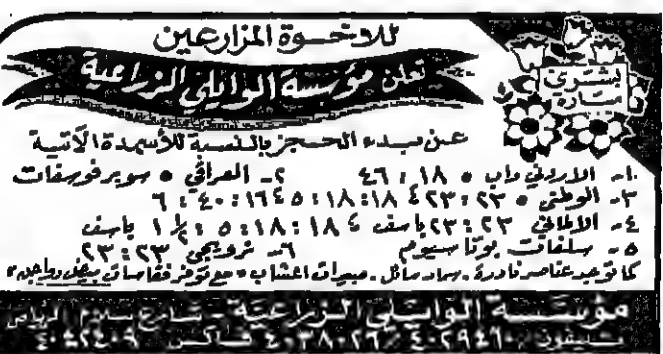 للاخوة المزارعين
بشرى سارة
تعلن مؤسسة الوايلي الزراعية
عن بدء الحجز بالنسبة للأسمدة الآتية
١- الاردني داب • ١٨ : ٤٦ ٢- العراقي • سوبر فوسفات
٣- الوطني • ٢٣:٢٣ ٤ ١٨:١٨:٥ ١٦:٤٠:٦
٤- الالماني ٢٣:٢٣ باسف ٤ ١٨:١٨:٥ : ١½ باسف
٥- سلفات بوتاسيوم ٦- نرويجي ٢٣:٢٣
كما توجد عناصر نادرة . سماد سائل . مبيدات اعشاب • مع توفر فقاسات بيض دواجن •
مؤسسة الوايلي الزراعية - شارع سلام الرياض
تليفون ٤٠٢٩٤٦٠ / ٤٠٣٨٠٢٦ فاكس ٤٠٤٢٤٠٩